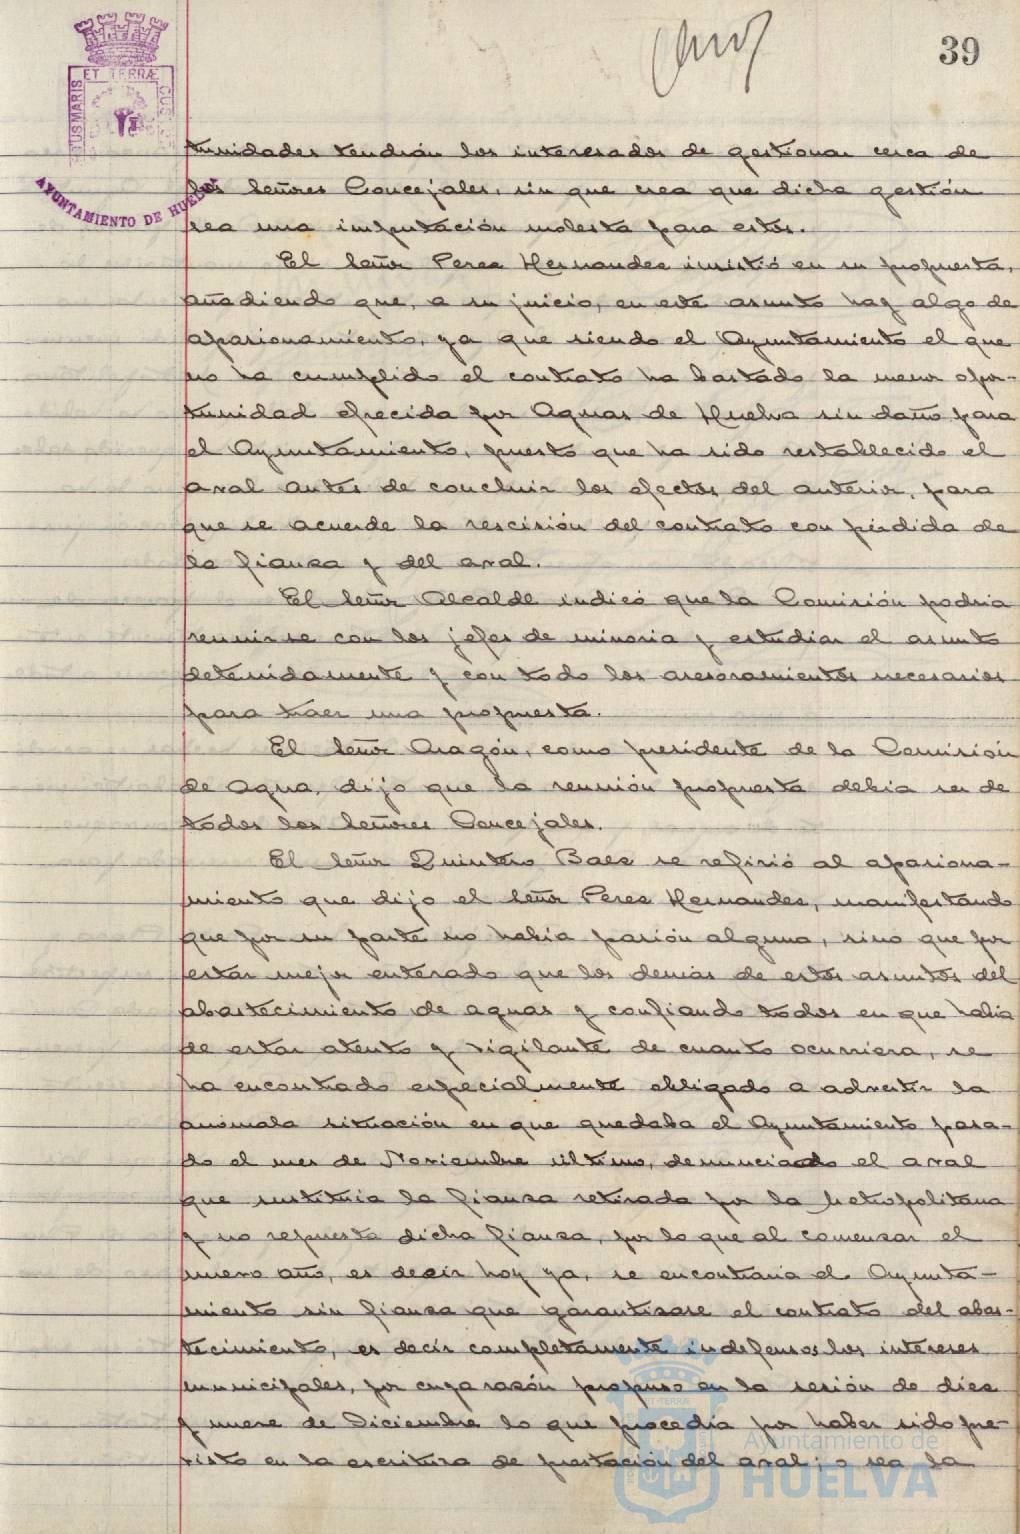 39
ET TERRÆ
TUS MARIS
AYUNTAMIENTO DE HUELVA
tunidades tendrán los interesados de gestionar cerca de
los Señores Concejales, sin que crea que dicha gestión
sea una imputación molesta para estos.
El Señor Perez Hernandez insistió en su propuesta,
añadiendo que, a su juicio, en este asunto hay algo de
apasionamiento, ya que siendo el Ayuntamiento el que
no ha cumplido el contrato ha bastado la menor opor-
tunidad ofrecida por Aguas de Huelva sin daño para
el Ayuntamiento, puesto que ha sido restablecido el
aval antes de concluir los efectos del anterior, para
que se acuerde la rescisión del contrato con pérdida de
la fianza y del aval.
El Señor Alcalde indicó que la Comisión podria
reunirse con los jefes de minoria y estudiar el asunto
detenidamente y con todo los asesoramientos necesarios
para traer una propuesta.
El Señor Aragón, como presidente de la Comisión
de Agua, dijo que la reunión propuesta debia ser de
todos los Señores Concejales.
El Señor Quintero Baez se refirió al apasiona-
miento que dijo el Señor Perez Hernandez, manifestando
que por su parte no habia pasión alguna, sino que por
estar mejor enterado que los demás de estos asuntos del
abastecimiento de aguas y confiando todos en que habia
de estar atento y vigilante de cuanto ocurriera, se
ha encontrado especialmente obligado a advertir la
anómala situación en que quedaba el Ayuntamiento pasa-
do el mes de Noviembre último, denunciado el aval
que sustituia la fianza retirada por la Metropolitana
y no repuesta dicha fianza, por lo que al comenzar el
nuevo año, es decir hoy ya, se encontraria el Ayunta-
miento sin fianza que garantizase el contrato del abas-
tecimiento, es decir completamente indefensos los intereses
municipales, por cuya razón propuso en la sesión de diez
y nueve de Diciembre lo que procedia por haber sido pre-
visto en la escritura de prestación del aval; o sea la
Ayuntamiento de
HUELVA